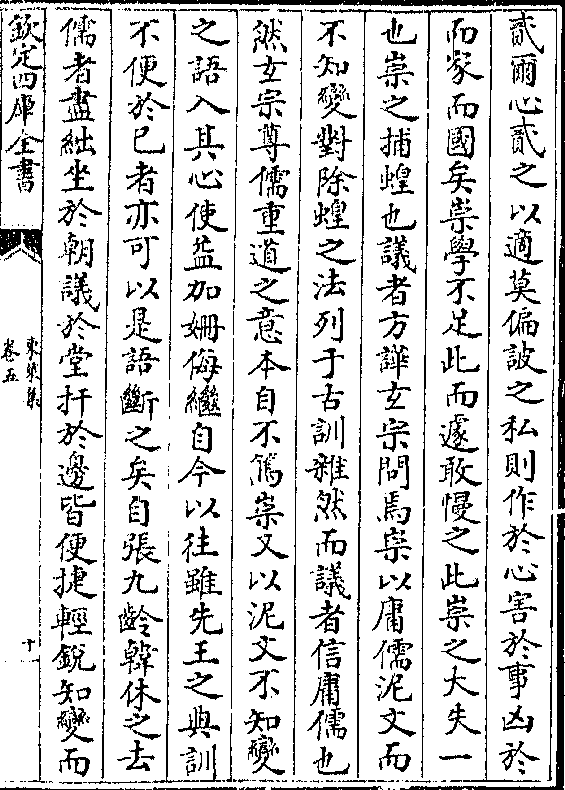 貳爾心貳之以適莫偏詖之私則作於心害於事凶於
而家而國矣崇學不足此而遽敢慢之此崇之大失一
也崇之捕蝗也議者方譁𤣥宗問焉崇以庸儒泥文而
不知變對除蝗之法列于古訓雜然而議者信庸儒也
然𤣥宗尊儒重道之意本自不篤崇又以泥文不知變
之語入其心使益加姍侮繼自今以往雖先王之典訓
不便於已者亦可以是語斷之矣自張九齡韓休之去
儒者盡絀坐於朝議於堂扞於邊皆便捷輕銳知變而
欽定四庫全書
東萊集
卷五
十